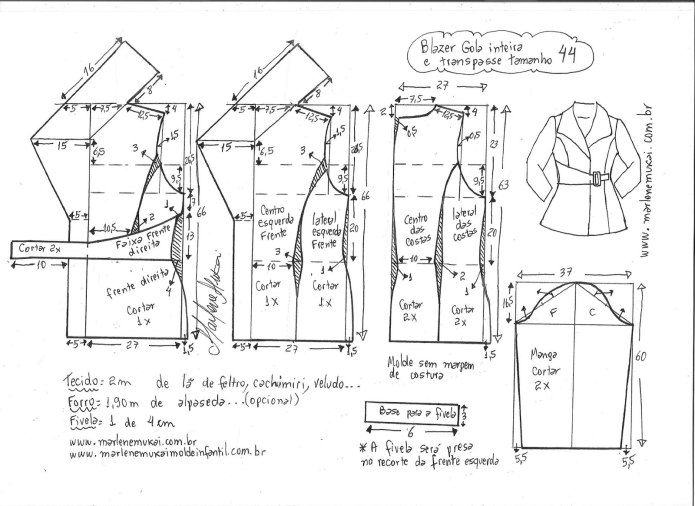 Blazer Gola inteira
e transpasse tamanho 44
16
8
5
7,5
12,5
4
15
6,5
3
1,5
9,5
26,5
7
66
5
10,5
2
1
13
Cortar 2x
Faixa Frente
direita
10
frente direita
4
Cortar
1x
5
27
1,5
Marlene Mukai
16
8
5
7,5
12,5
4
15
6,5
3
1,5
9,5
66
Centro
esquerda
Frente
lateral
esquerda
Frente
5
20
3
1
10
Cortar
1x
Cortar
1x
5
27
1,5
27
7,5
2
12,5
4
0,5
0,5
23
9,5
63
Centro
das
costas
lateral
das
costas
20
10
1
2
1
Cortar
2x
Cortar
2x
1,5
Molde sem margem
de costura
www.marlenemukai.com.br
37
16,5
F
C
60
Manga
Cortar
2x
5,5
5,5
Tecido = 2m de lã de feltro, cachimiri, veludo...
Forro = 1,90m de alpaseda...(opcional)
Fivela = 1 de 4cm
www.marlenemukai.com.br
www.marlenemukaimoldeinfantil.com.br
Base para a fivela
3
6
* A fivela será presa
no recorte da frente esquerda